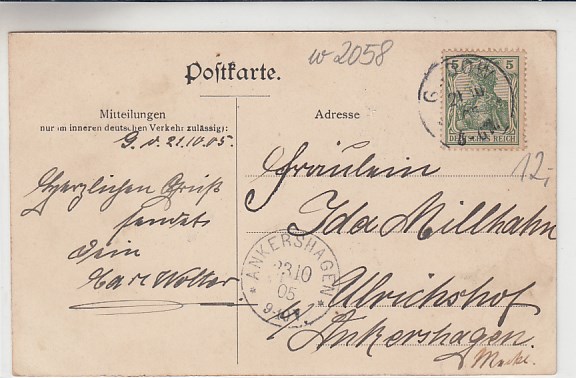 w 2058
Postkarte.
Mitteilungen
nur im inneren deutschen Verkehr zulässig:
Adresse
5 5
DEUTSCHES REICH
12,-
G. d. 21.10.05.
Herzlichen Gruß
sendet
Dein
Karl Wolter
Fräulein
Ida Millhahn
Ulrichshof
b/ Ankershagen.
i/ Meckl.
* ANKERSHAGEN *
23 10
05